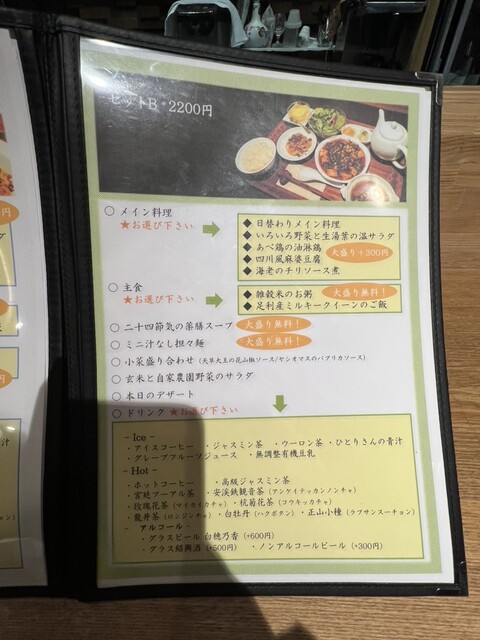 セットB・2200円
○ メイン料理
★お選び下さい
◆ 日替わりメイン料理
◆ いろいろ野菜と生湯葉の温サラダ
◆ あべ鶏の油淋鶏
大盛り+300円
◆ 四川風麻婆豆腐
◆ 海老のチリソース煮
○ 主食
★お選び下さい
◆ 雑穀米のお粥
大盛り無料!
◆ 足利産ミルキークイーンのご飯
○ 二十四節気の薬膳スープ
大盛り無料!
○ ミニ汁なし担々麺
大盛り無料!
○ 小菜盛り合わせ (天草大王の花山椒ソース/ヤシオマスのパプリカソース)
○ 玄米と自家農園野菜のサラダ
○ 本日のデザート
○ ドリンク ★お選び下さい
- Ice -
・アイスコーヒー ・ジャスミン茶 ・ウーロン茶 ・ひとりさんの青汁
・グレープフルーツジュース ・無調整有機豆乳
- Hot -
・ホットコーヒー ・高級ジャスミン茶
・宮廷プーアル茶 ・安渓鉄観音茶 (アンケイテッカンノンチャ)
・玫瑰花茶 (マイカイカチャ) ・杭菊花茶 (コウキッカチャ)
・龍井茶 (ロンジンチャ) ・白牡丹 (ハクボタン) ・正山小種 (ラプサンスーチョン)
- アルコール -
・グラスビール 白穂乃香 (+600円)
・グラス紹興酒 (+500円) ・ノンアルコールビール (+300円)